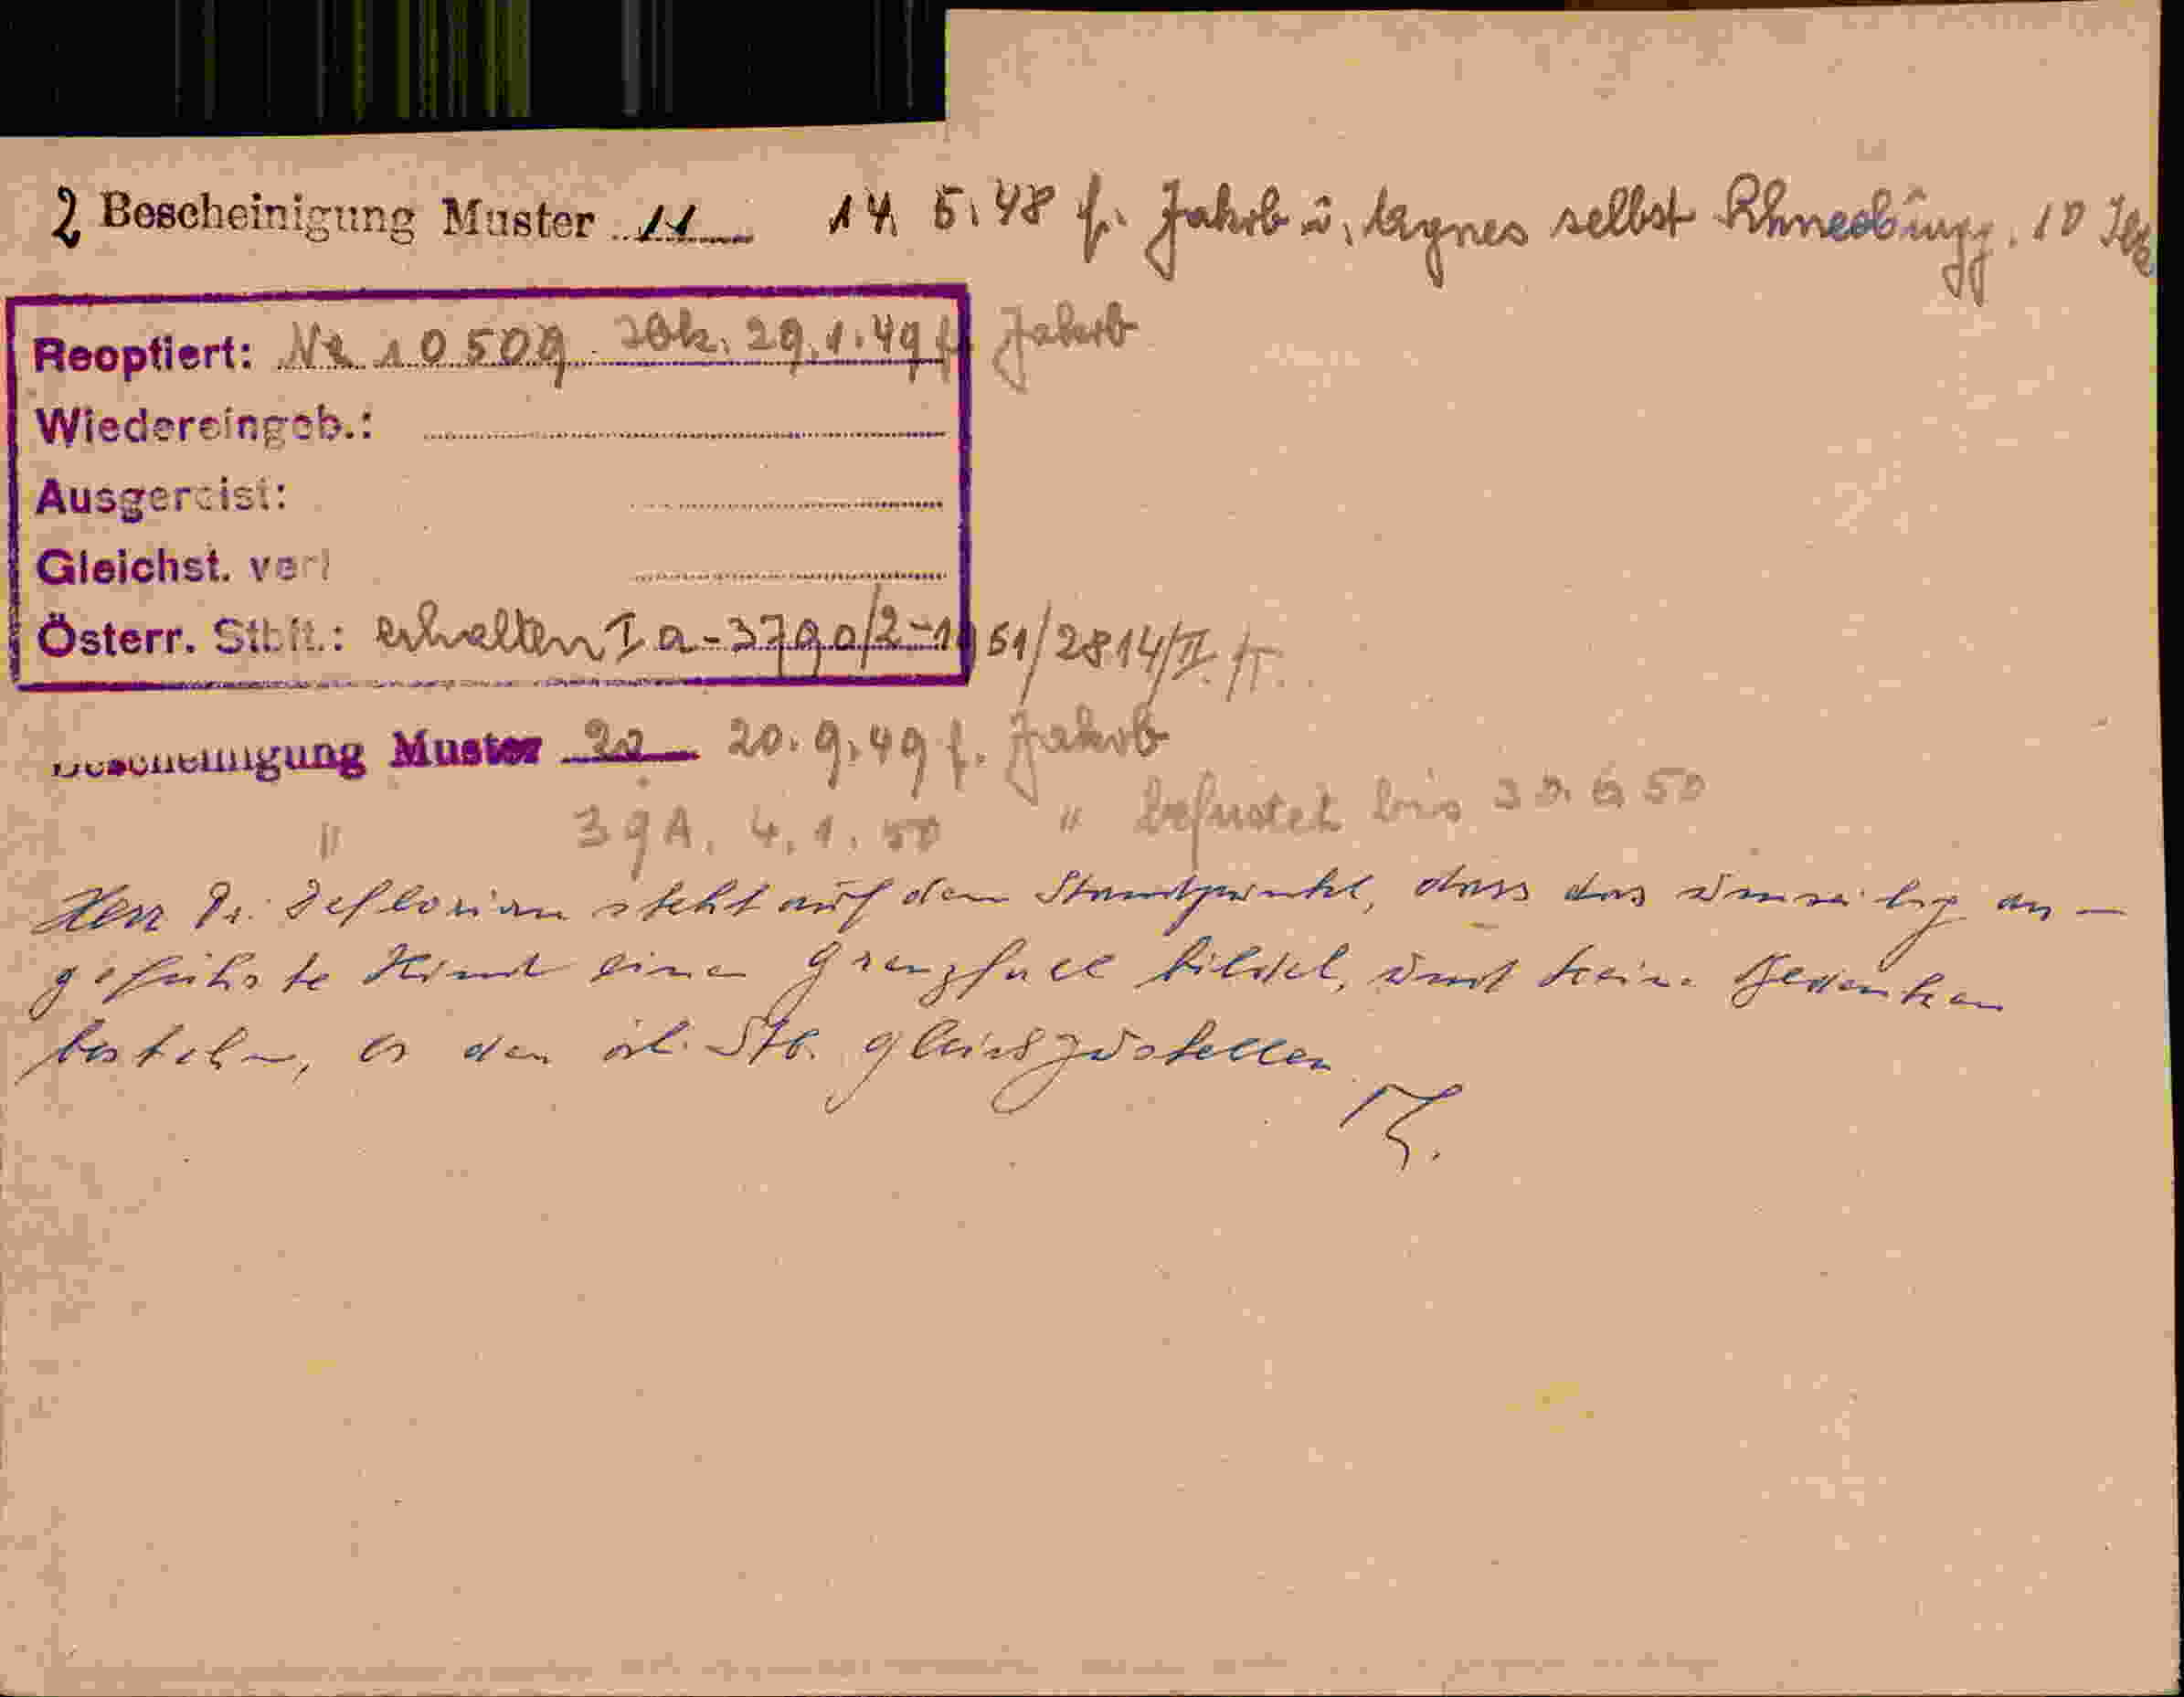 2 Bescheinigung Muster 11 14. 5. 48 f. Jakob u. Agnes selbst 10
Reoptiert: Nr 10509 29.1.49 f. Jakob
Wiedereingeb.:
Ausgereist:
Gleichst. verl
Österr. Stbft.: erhalten Ia-3790/2-1951/2814/II/T.
Bescheinigung Muster 22 20.9.49 f. Jakob
" 39A. 4.1.50 " befristet bis 30.6 50
Herr Dr. Deflorian steht auf dem Standpunkt, dass das umseitig an-
geführte Kind einen Grenzfall bildet, und keine Bedenken
bestehen, es den öst. Stb. gleichzustellen